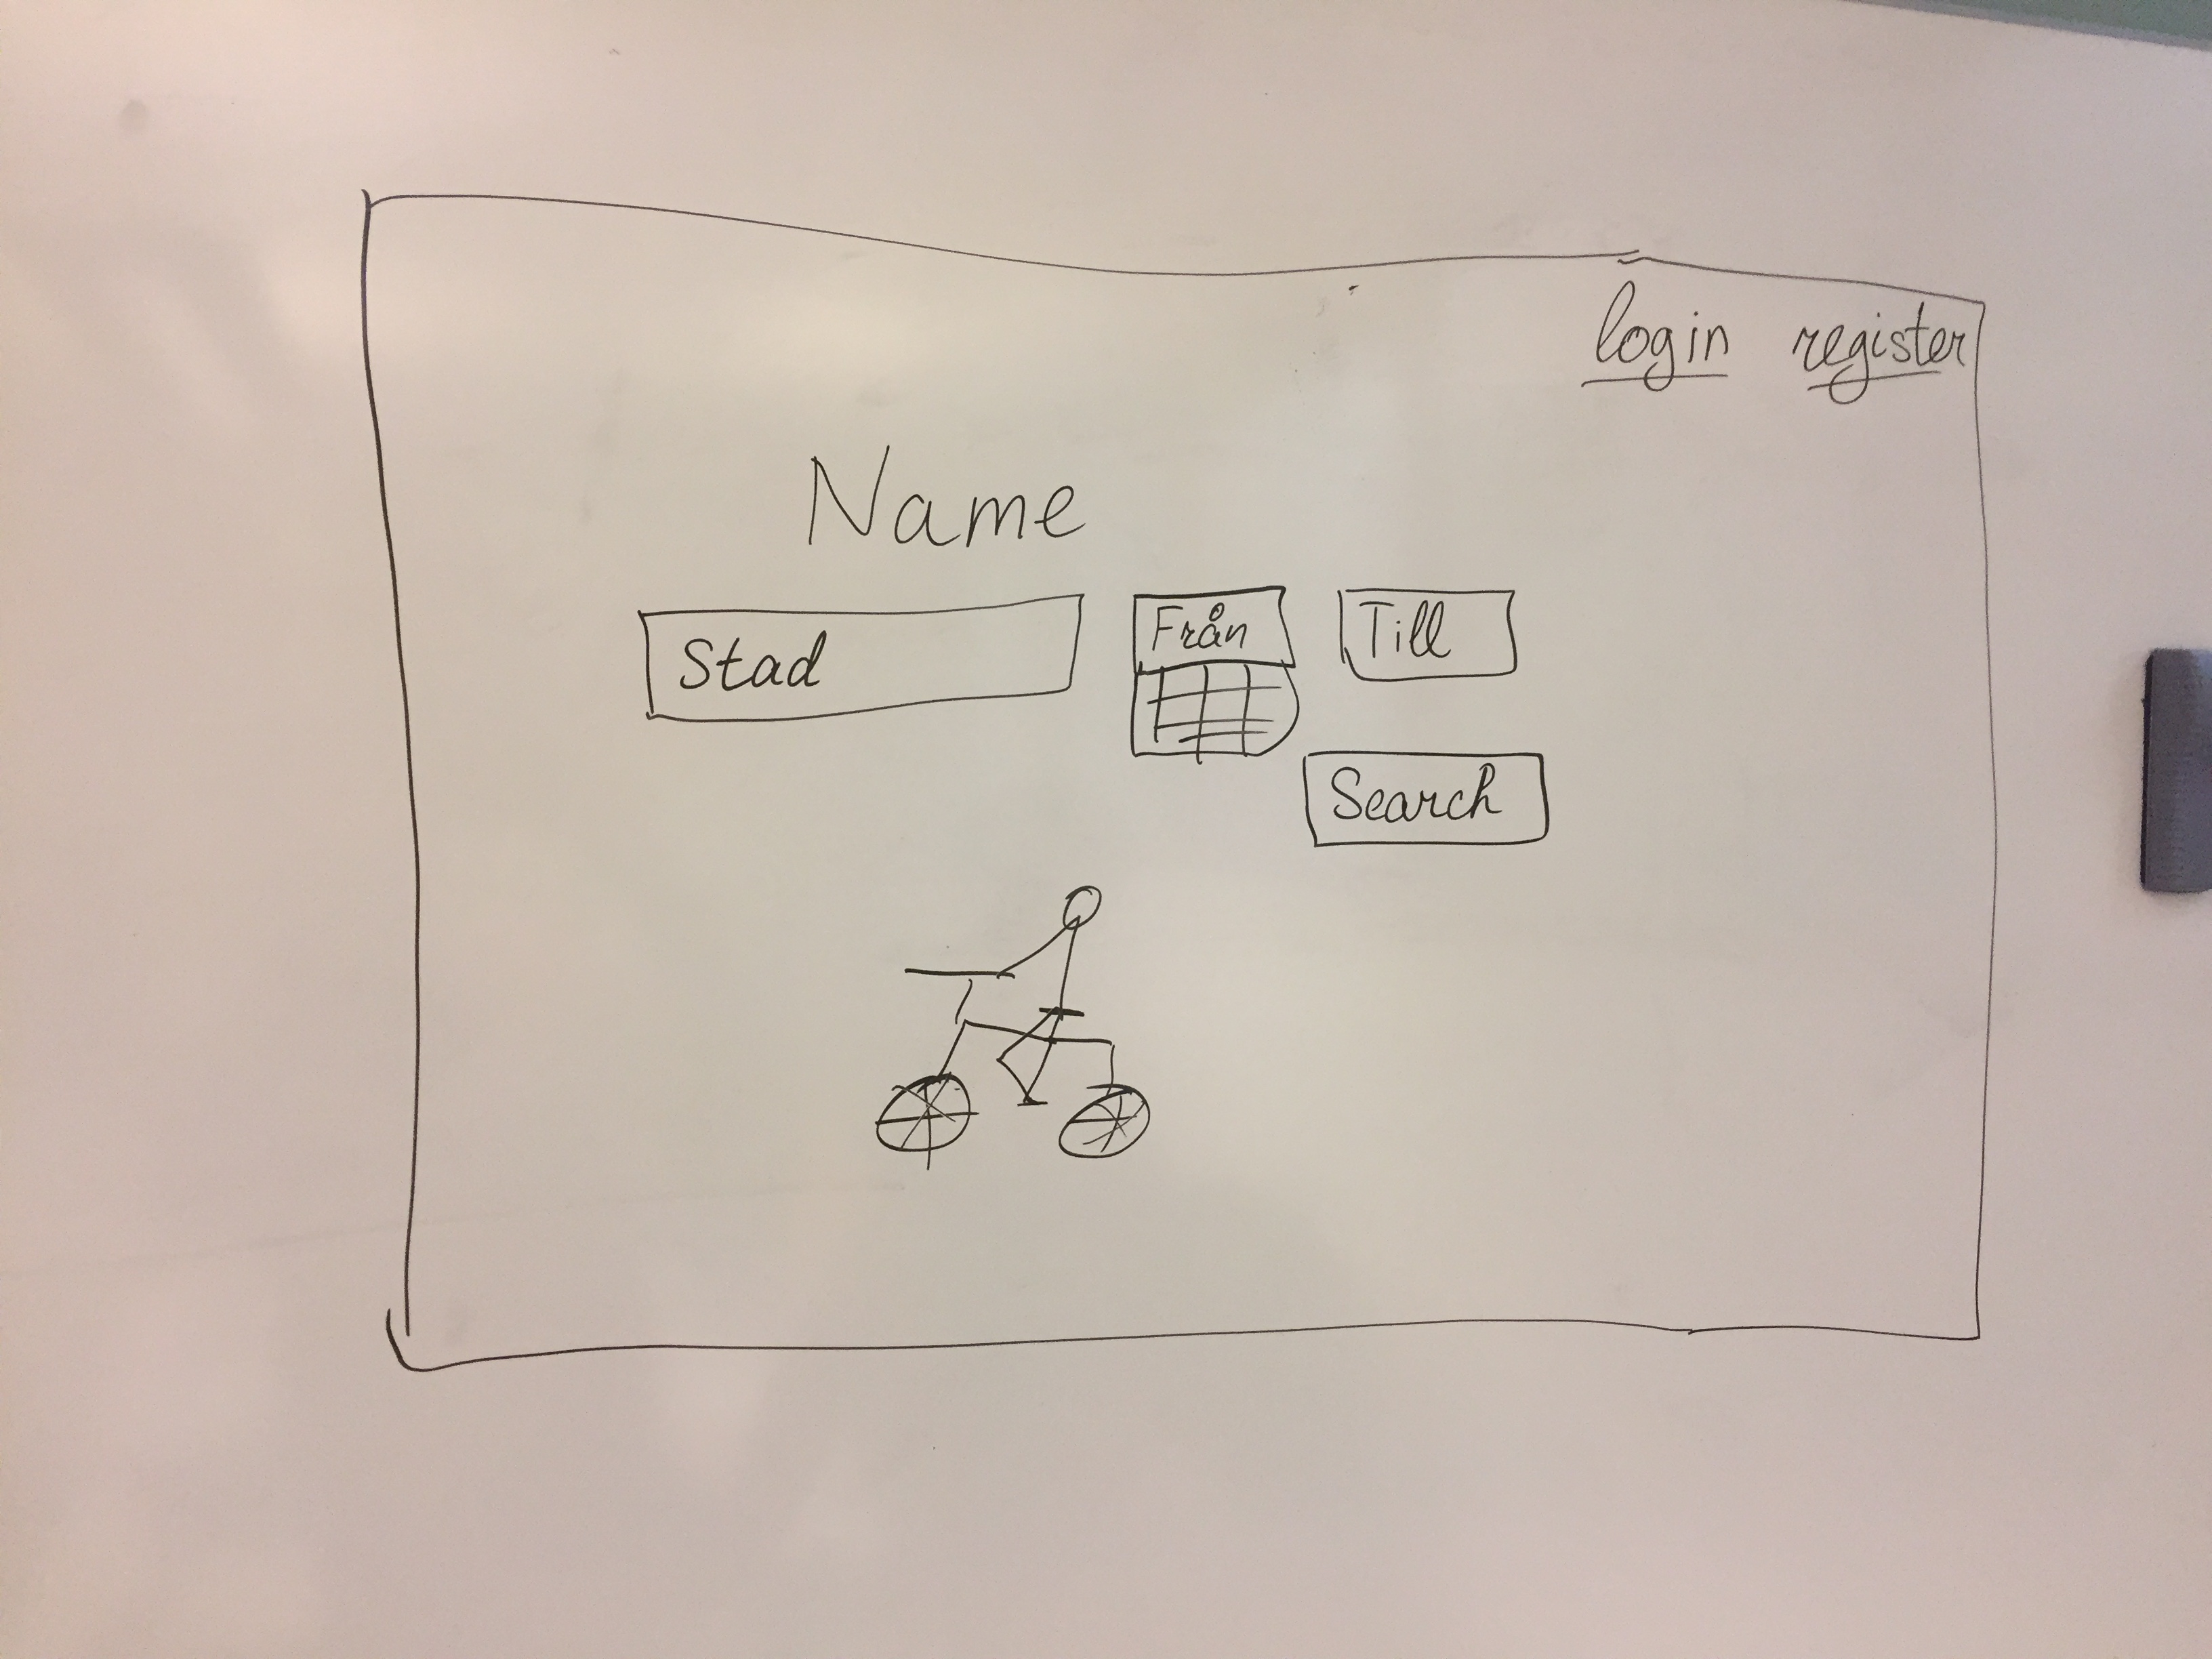 login register
Name
Stad Från Till
Search